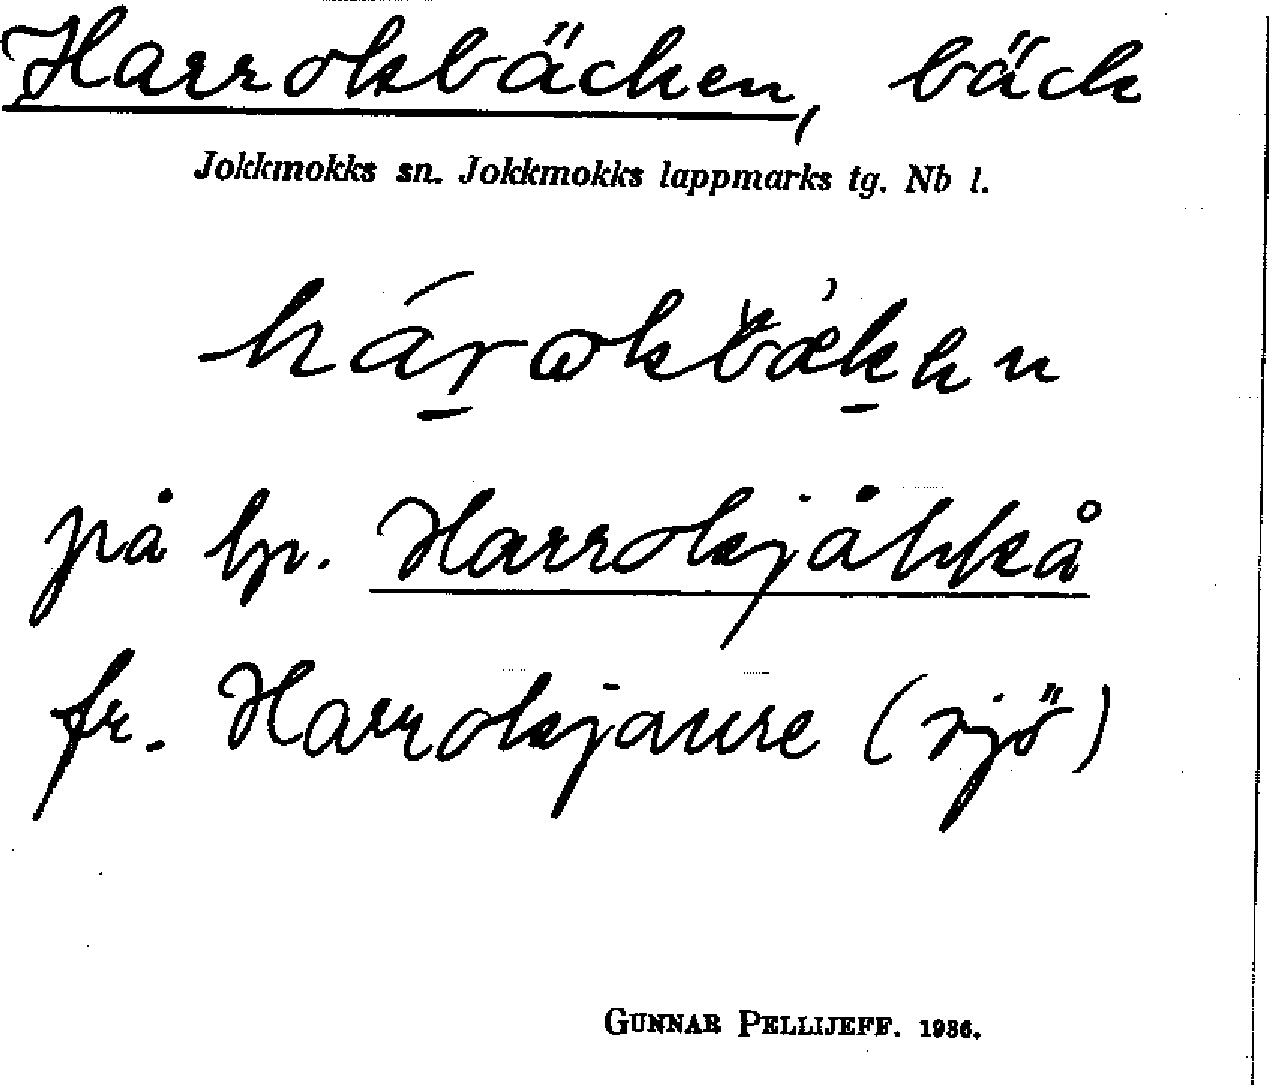 Harrokbäcken, bäck
Jokkmokks sn. Jokkmokks lappmarks tg. Nb l.
på lp. Harrokjåhkå
fr. Harrokjaure (sjö)
GUNNAR PELLIJEFF. 1936.